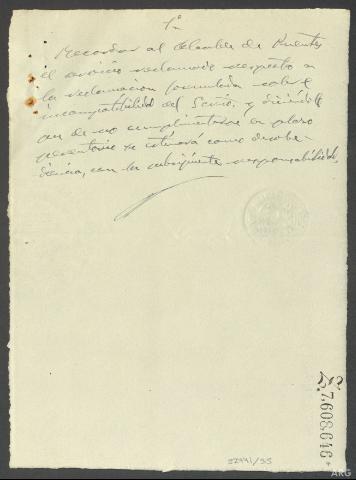 1º
Recordar al Alcalde de Fuentes
el servicio reclamado respecto a
la reclamación formulada sobre
incompatibilidad del Secrio. y diciéndole
que de no cumplimentarse en plazo
perentorio se estimará como desobe-
diencia, con la subsiguiente responsabilidad.
7.608.646
32441/35
ARG